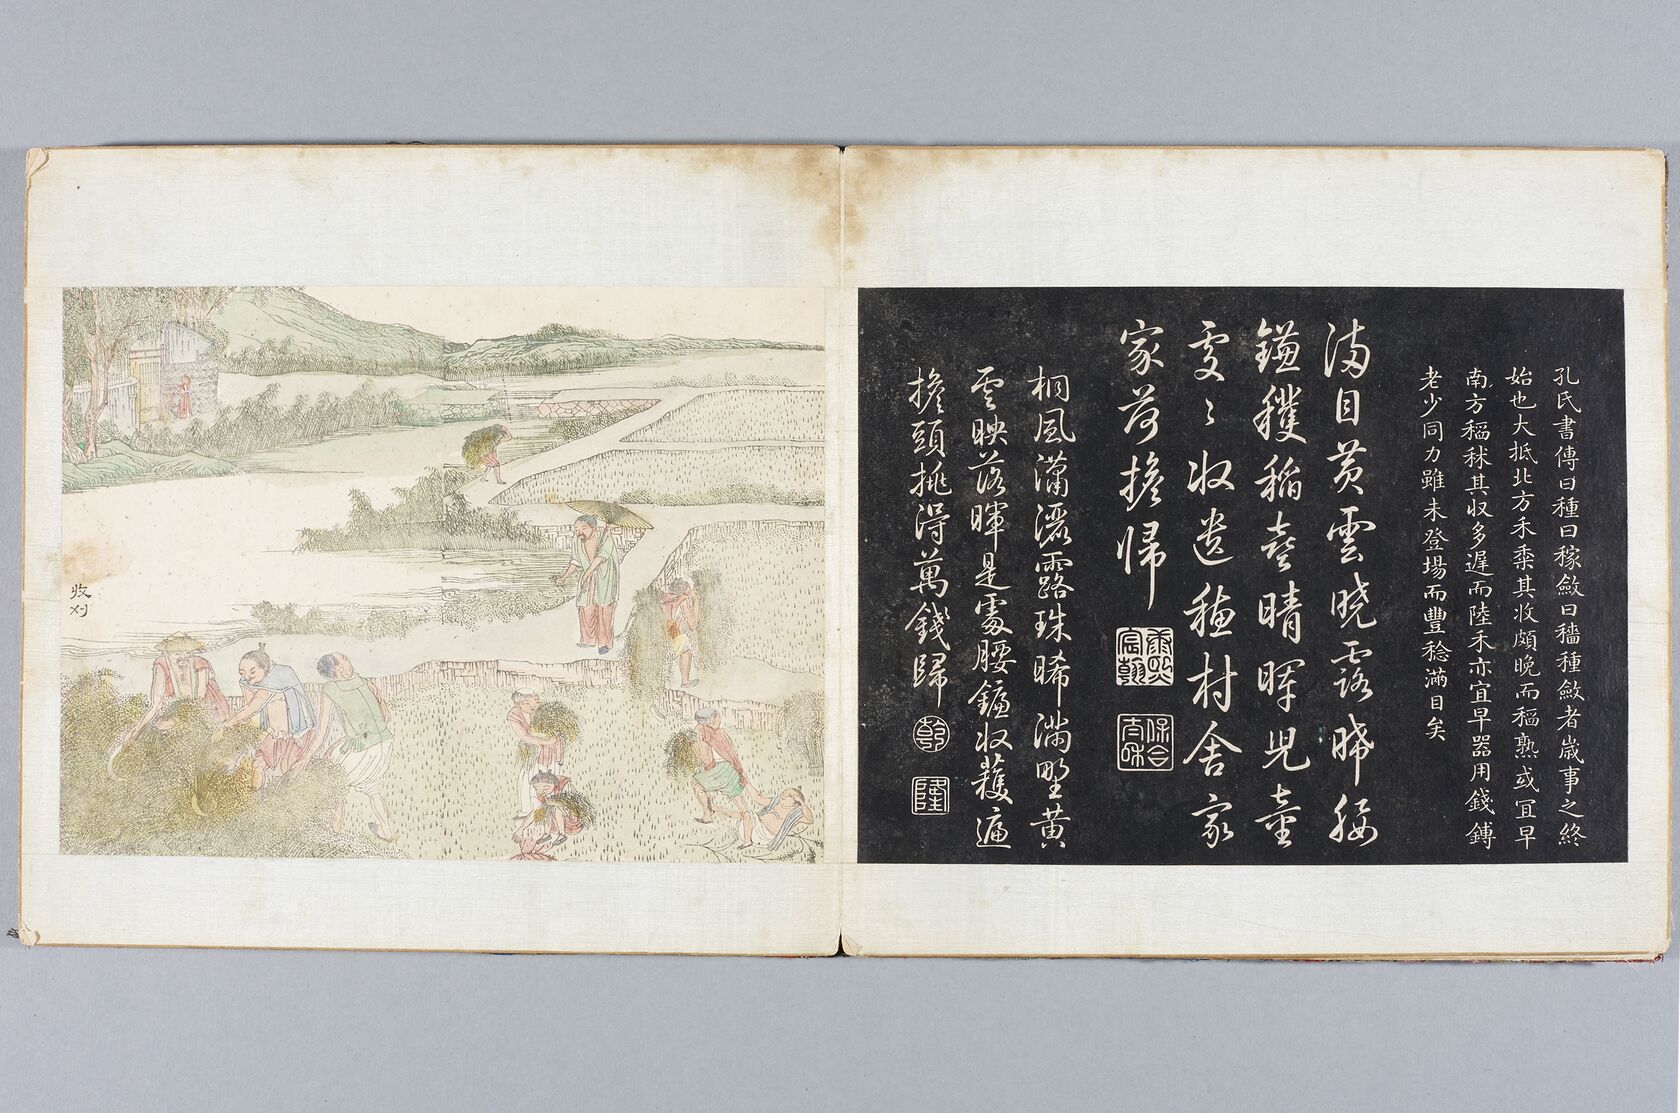 孔氏書傳曰種曰稼斂曰穡種斂者歲事之終
始也大抵北方禾黍其收頗晚而稻熟或宜早
南方稻秫其収多遲而陸禾亦宜早器用錢鎛
老少同力雖未登場而豐稔滿目矣
滿目黃雲曉露晞腰
鎌穫稻喜晴暉兒童
處々收遺穗村舍家
家荷擔歸
康熙宸翰
保合太和
桐風瀟灑露珠晞滿野黃
雲映落暉是處腰鐮收穫遍
擔頭挑得萬錢歸
乾
隆
收刈